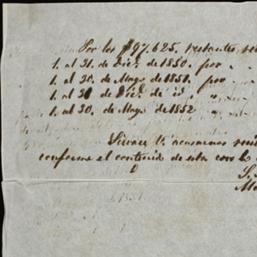 Por los $97.625. restantes
1. al 31. de Dice. de 1850. por
1. al 30. de Mayo de 1851. por
1. al 31 de Dice. de id.
1. al 30. de Mayo de 1852
Sirvase V. acusarnos
conforme al contenido de esta con la
S. S.